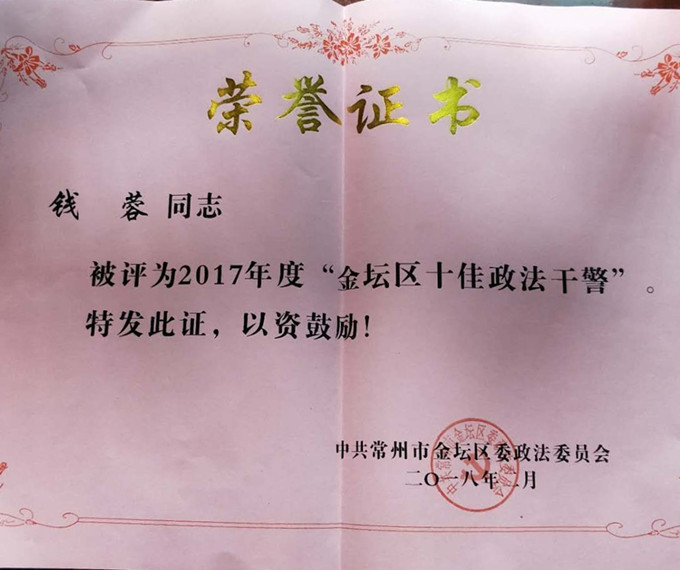 荣誉证书
钱 蓉 同志
被评为2017年度“金坛区十佳政法干警”。
特发此证，以资鼓励！
中共常州市金坛区委政法委员会
二〇一八年二月